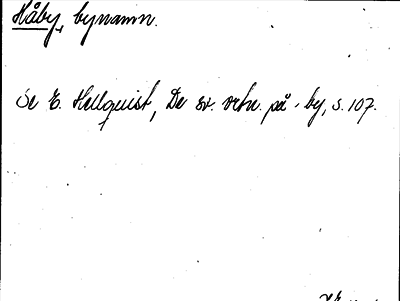 Håby, bynamn.
Se E. Hellquist, De sv. ortn. på -by, s. 107.